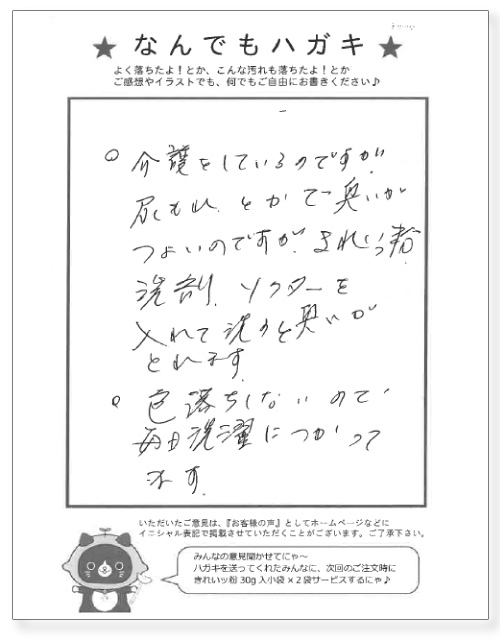 ★ なんでもハガキ ★
よく落ちたよ！とか、こんな汚れも落ちたよ！とか
ご感想やイラストでも、何でもご自由にお書きください♪
○ 介護をしているのですが
尿もれ とかで臭いが
つよいのですが、きれいッ粉
洗剤、ソフターを
入れて洗うと臭いが
とれます。
○ 色落ちしないので
毎日洗濯につかって
います。
いただいたご意見は、『お客様の声』としてホームページなどに
イニシャル表記で掲載させていただくことがございます。ご了承下さい。
みんなの意見聞かせてにゃ〜
ハガキを送ってくれたみんなに、次回のご注文時に
きれいッ粉 30g 入小袋 × 2 袋サービスするにゃ♪